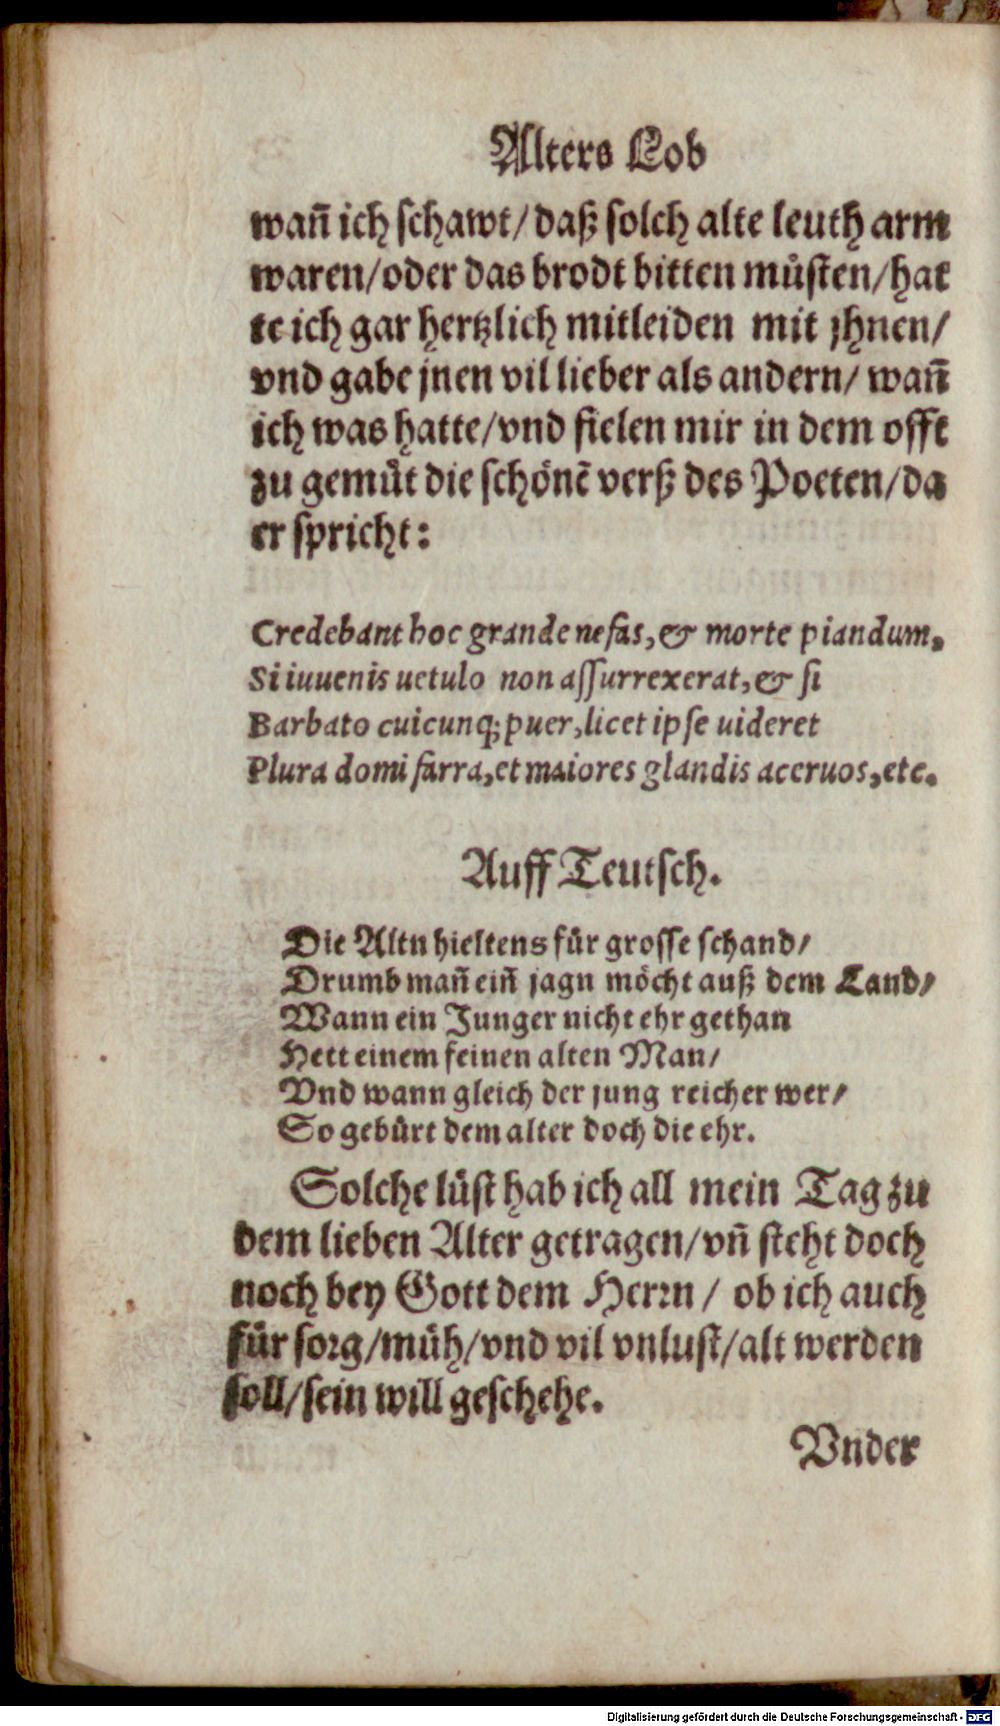 Alters Lob
wañ ich schawt/ daß solch alte leuth arm
waren/ oder das brodt bitten müsten/ hat
te ich gar hertzlich mitleiden mit jhnen/
vnd gabe jnen vil lieber als andern/ wañ
ich was hatte/ vnd fielen mir in dem offt
zu gemüt die schönẽ verß des Poeten/ da
er spricht:
Credebant hoc grande nefas, & morte piandum,
Si iuuenis uetulo non assurrexerat, & si
Barbato cuicunq; puer, licet ipse uideret
Plura domi farra, et maiores glandis aceruos, etc.
Auff Teutsch.
Die Altn hieltens für grosse schand/
Drumb mañ eiñ jagn möcht auß dem Land/
Wann ein Junger nicht ehr gethan
Hett einem feinen alten Man/
Vnd wann gleich der jung reicher wer/
So gebürt dem alter doch die ehr.
Solche lüst hab ich all mein Tag zu
dem lieben Alter getragen/ vñ steht doch
noch bey Gott dem Herrn/ ob ich auch
für sorg/ müh/ vnd vil vnlust/ alt werden
soll/ sein will geschehe.
Vnder
Digitalisierung gefördert durch die Deutsche Forschungsgemeinschaft - DFG